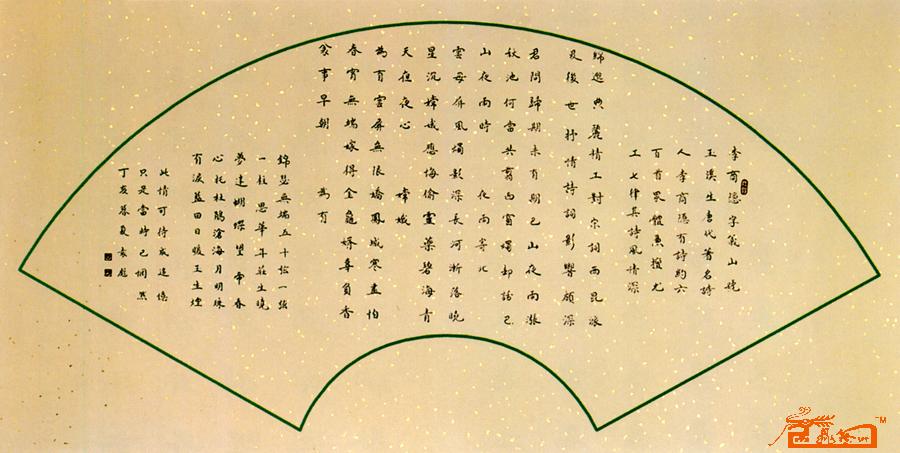 李商隱字義山號
玉溪生唐代著名詩
人李商隱有詩約六
百首眾體兼擅尤
工七律其詩風情深
綿邈典麗情工對宋詞西昆派
及後世抒情詩詞影響頗深
君問歸期未有期巴山夜雨漲
秋池何當共剪西窗燭却話巴
山夜雨時 夜雨寄北
雲母屏風燭影深長河漸落曉
星沉嫦娥應悔偷靈藥碧海青
天夜夜心 嫦娥
為有雲屏無限嬌鳳城寒盡怕
春宵無端嫁得金龜婿辜負香
衾事早朝 為有
錦瑟無端五十弦一弦
一柱思華年莊生曉
夢迷蝴蝶望帝春
心托杜鵑滄海月明珠
有淚藍田日暖玉生煙
此情可待成追憶
只是當時已惘然
丁亥暮夏袁